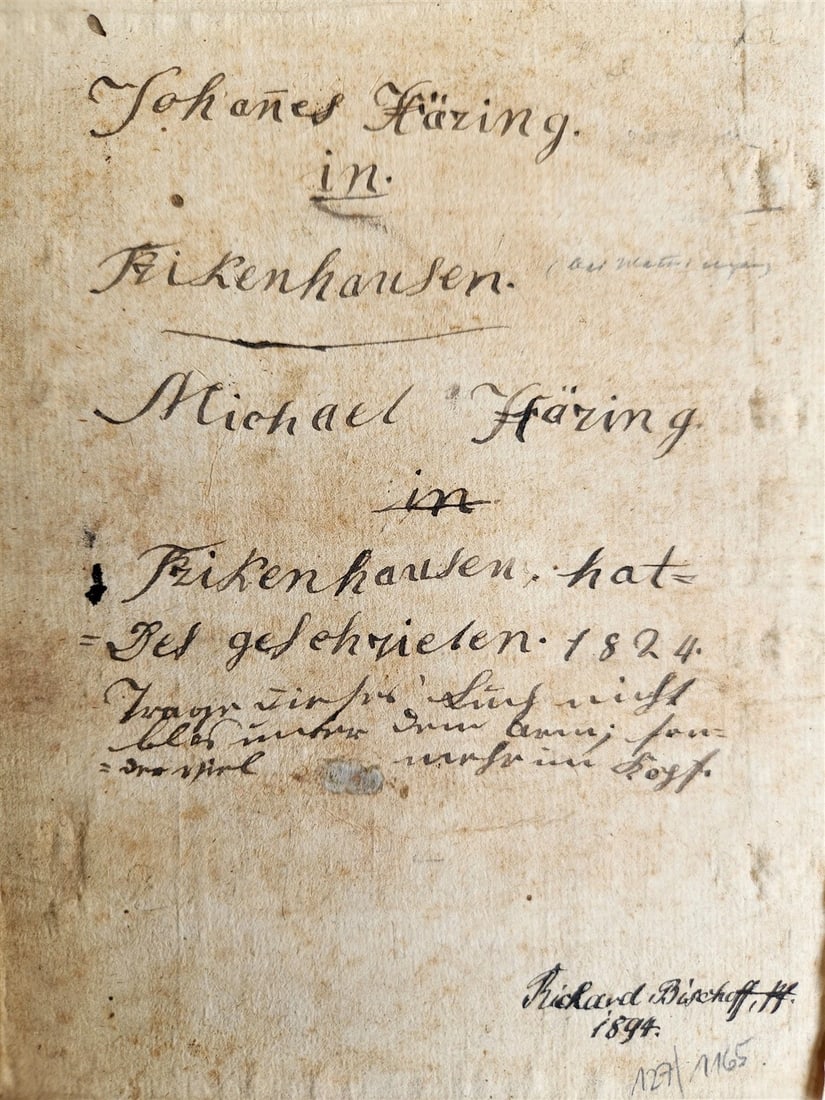 Johan̄es Häring.
in.
Frikenhausen.
Michael Häring
in
Frikenhausen, hat=
=Des geschrieben. 1824.
Trage dieses Buch nicht
blos unter dem arm; son=
=der viel mehr im Kopf.
Richard Bischoff, Pf.
1894.
127/1165.